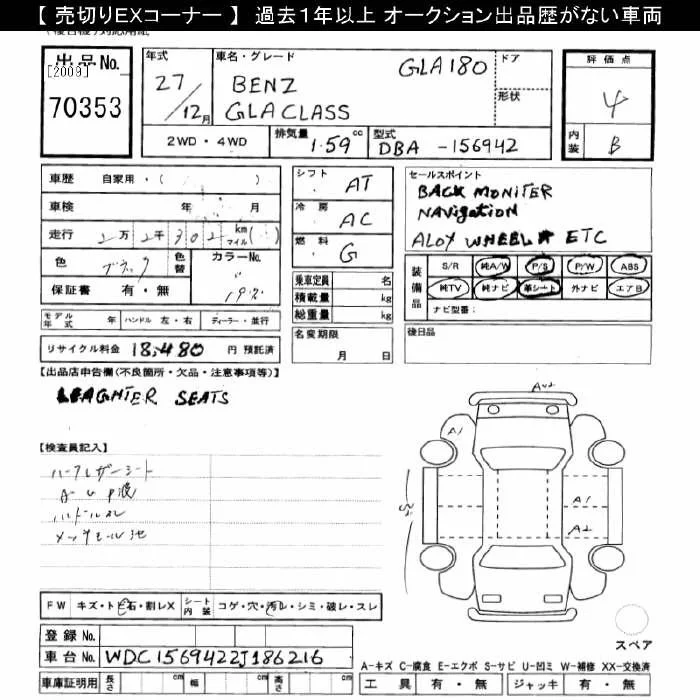 【 売切りEXコーナー 】 過去1年以上 オークション出品歴がない車両
出品No.
[2009]
70353
年式
27/12月
車名・グレード
BENZ
GLA CLASS
GLA180
ドア
形状
2WD・4WD
排気量
1.59 cc
型式
DBA -156942
評価点
4
内装
B
車歴 自家用・( )
車検 年 月
走行 2万2千302 km マイル( )
色 ブラック
色替
カラーNo.
保証書 有・無
シフト AT
冷房 AC
燃料 G
乗車定員 名
積載量 kg
総重量 kg
セールスポイント
BACK MONITER
NAVIGATION
ALOY WHEEL ETC
装備品
S/R 純A/W P/S P/W ABS
純TV 純ナビ 革シート 外ナビ エアB
ナビ型番:
モデル年式 年 ハンドル 左・右 ディーラー・並行
名変期限
月 日
後日品
リサイクル料金 18,480 円 預託済
【出品店申告欄(不良箇所・欠品・注意事項等)】
LEAGHTER SEATS
【検査員記入】
ハーフレザーシート
ハンドルスレ
A2
A1
A1
A2
FW キズ・トビ石・割レX
シート内装 コゲ・穴・汚レ・シミ・破レ・スレ
スペア
登録 No.
車台 No. WDC1569422J186216
A-キズ C-腐食 E-エクボ S-サビ U-凹ミ W-補修 XX-交換済
車庫証明用 長さ cm 幅 cm 高さ cm
工具 有・無 ジャッキ 有・無